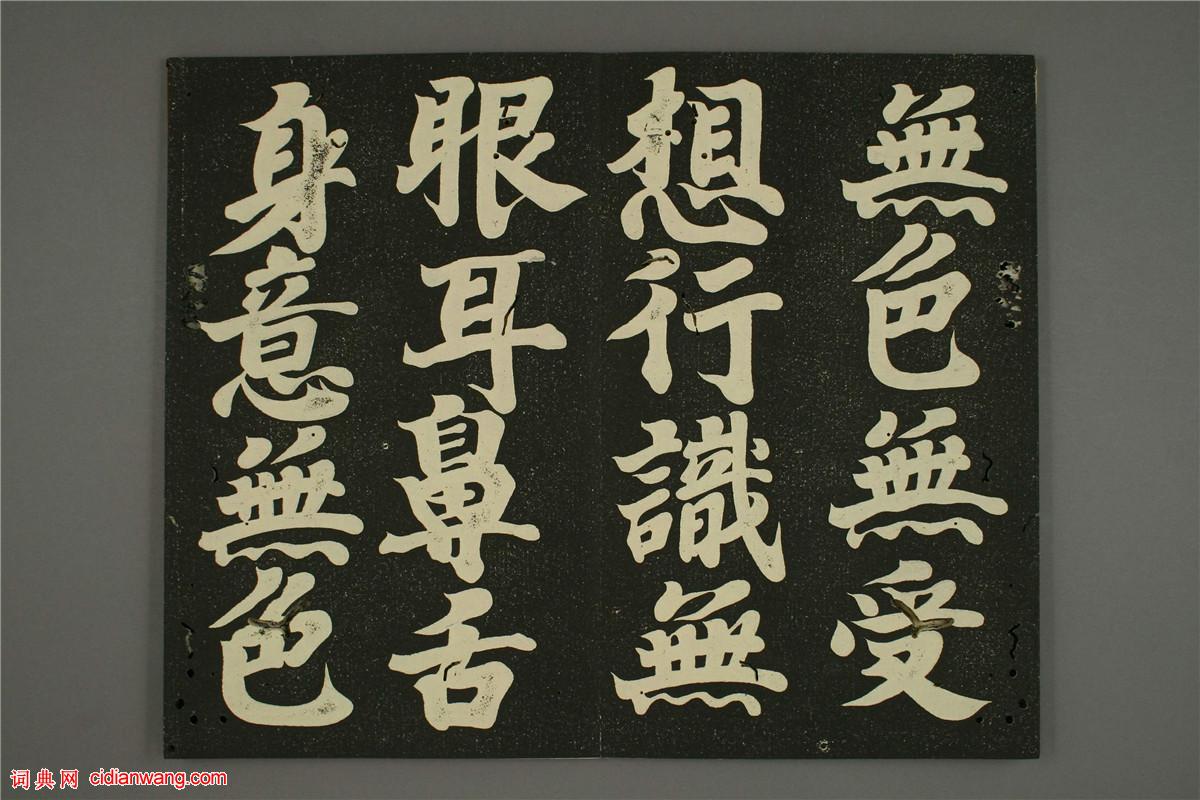 無色無受
想行識無
眼耳鼻舌
身意無色
词典网 cidianwang.com